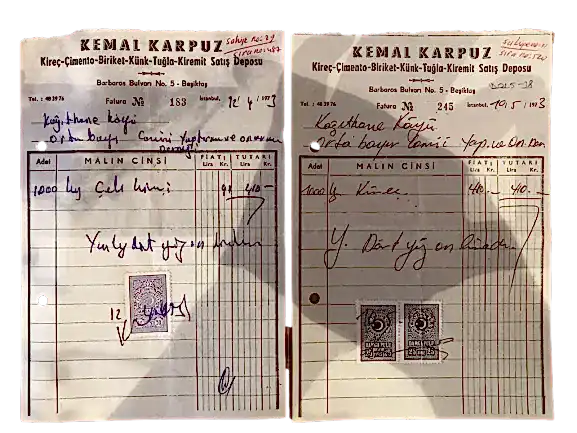 KEMAL KARPUZ
Kireç-Çimento-Biriket-Künk-Tuğla-Kiremit Satış Deposu
Barbaros Bulvarı No. 5 - Beşiktaş
Tel. : 483976
Fatura № 183
İstanbul, 12/4/1973
Kağıthane köyü
Orta bayır Camii Yaptırma ve onarım
Derneği
Adet
MALIN CİNSİ
FİATI
Lira Kr.
TUTARI
Lira Kr.
1000 kg
410 —
Yalnız dört yüz on liradır
KEMAL KARPUZ
Kireç-Çimento-Biriket-Künk-Tuğla-Kiremit Satış Deposu
Barbaros Bulvarı No. 5 - Beşiktaş
Tel. : 483976
Fatura № 245
İstanbul, 19/5/1973
Kağıthane Köyü
Orta bayır Camii Yap. ve On. Der.
Adet
MALIN CİNSİ
FİATI
Lira Kr.
TUTARI
Lira Kr.
1000 kg Kireç 410.— 410.—
Y. Dört yüz on liradır
DAMGA PULU
DAMGA PULU